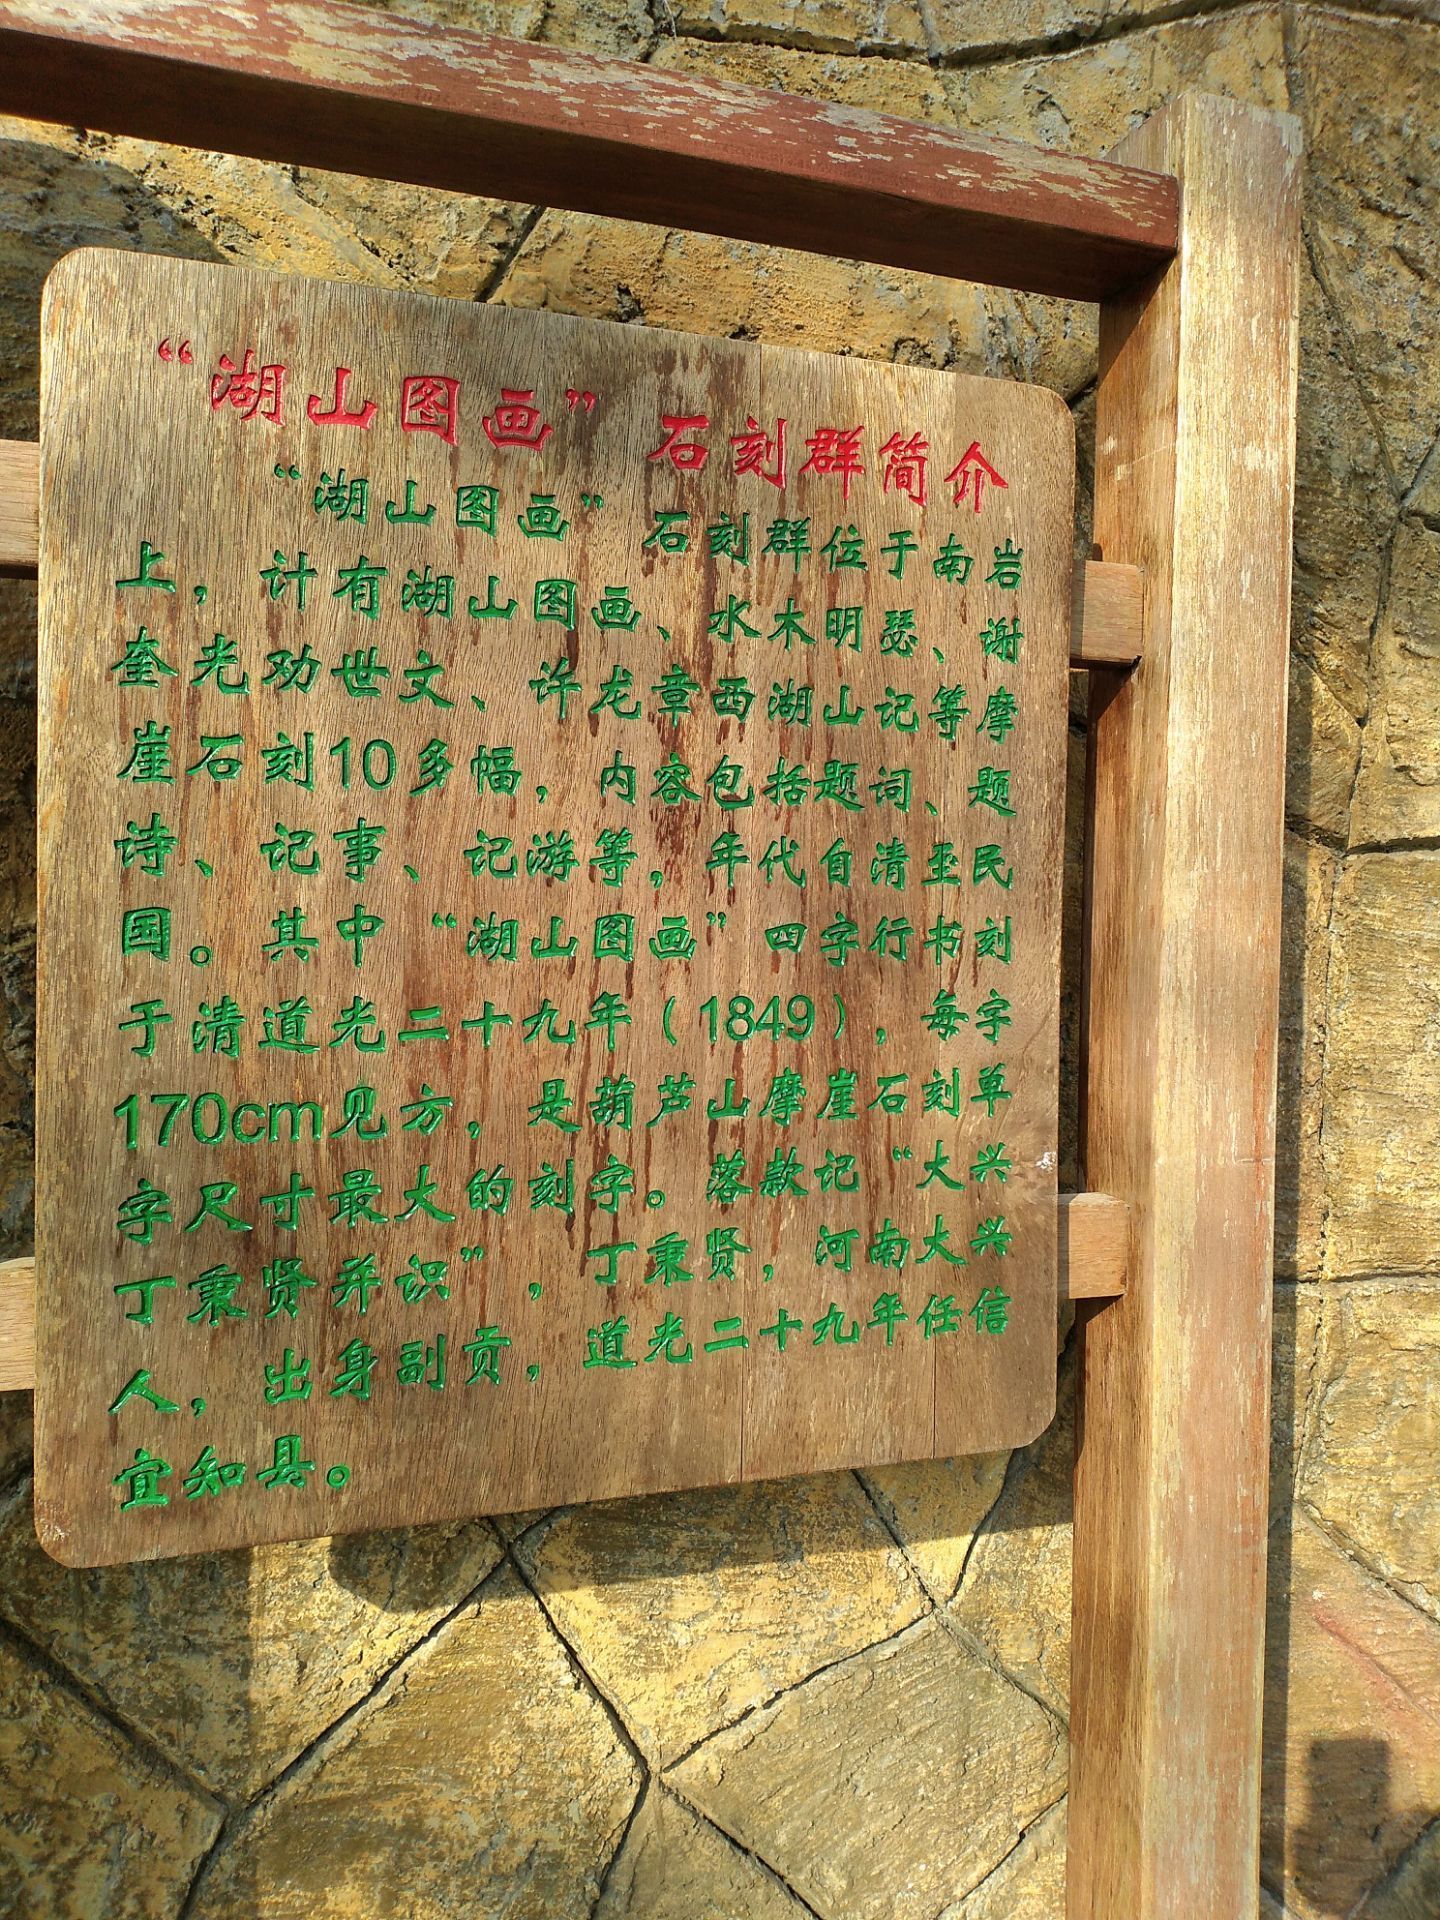 “湖山图画”石刻群简介
“湖山图画”石刻群位于南岩
上，计有湖山图画、水木明瑟、谢
奎光劝世文、许龙章西湖山记等摩
崖石刻10多幅，内容包括题词、题
诗、记事、记游等，年代自清至民
国。其中“湖山图画”四字行书刻
于清道光二十九年（1849），每字
170cm见方，是葫芦山摩崖石刻单
字尺寸最大的刻字。落款记“大兴
丁秉贤并识”，丁秉贤，河南大兴
人，出身副贡，道光二十九年任信
宜知县。